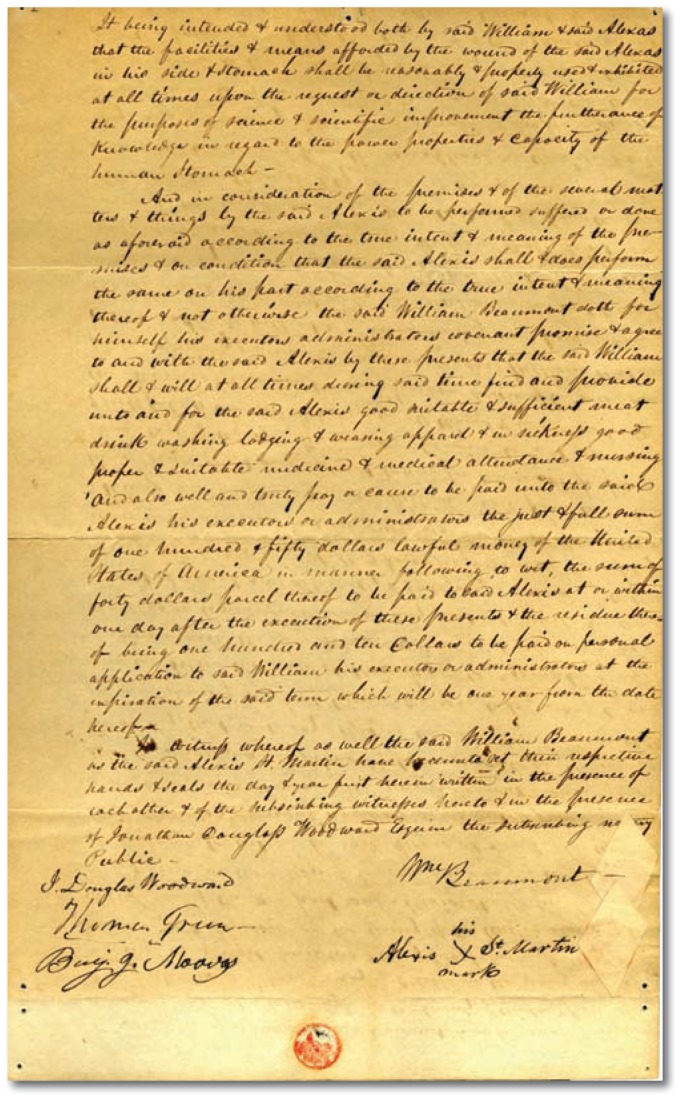 It being intended & understood both by said William & said Alexas
that the facilities & means afforded by the wound of the said Alexas
in his side & Stomach shall be reasonably & properly used & exhibited
at all times upon the request or direction of said William for
the purposes of science & scientific improvement the furtherance of
Knowledge in regard to the power properties & capacity of the
human Stomach –
And in consideration of the premises & of the several mat
ters & things by the said Alexis to be performed suffered or done
as aforesaid according to the true intent & meaning of the pre-
mises & on condition that the said Alexis shall & does perform
the same on his part according to the true intent & meaning
thereof & not otherwise the said William Beaumont doth for
himself his executors administrators covenant promise & agree
to and with the said Alexis by these presents that the said William
shall & will at all times during said time find and provide
unto and for the said Alexis good suitable & sufficient meat
drink washing lodging & wearing apparel & in sickness good
proper & suitable medicine & medical attendance & nursing
And also well and truly pay or cause to be paid unto the said
Alexis his executors or administrators the just & full sum
of one hundred & fifty dollars lawful money of the United
States of America in manner following to wit, the sum of
forty dollars parcel thereof to be paid to said Alexis at or within
one day after the execution of these presents & the residue there-
of being one hundred and ten Dollars to be paid on personal
application to said William his executors or administrators at the
expiration of the said term which will be one year from the date
hereof
In witness whereof as well the said William Beaumont
as the said Alexis St. Martin have hereunto set their respective
hands & seals the day & year first herein written in the presence of
each other & of the subscribing witnesses hereto & in the presence
of Jonathan Douglass Woodward Esquire the subscribing notary
Public –
J. Douglas Woodward
Wm Beaumont
Thomas Green
Benj. G. Mooers
his
Alexis X St. Martin
mark